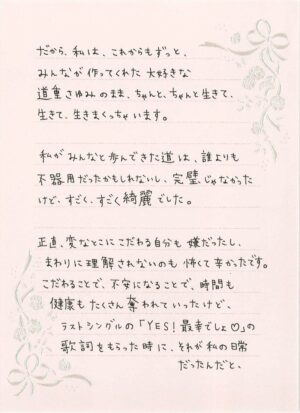 だから、私は、これからもずっと、
みんなが作ってくれた大好きな
道重さゆみのまま、ちゃんと、ちゃんと生きて、
生きて、生きまくっちゃいます。
私がみんなと歩んできた道は、誰よりも
不器用だったかもしれないし、完璧じゃなかった
けど、すごく、すごく綺麗でした。
正直、変なとこにこだわる自分も嫌だったし、
まわりに理解されないのも怖くて辛かったです。
こだわることで、不安になることで、時間も
健康もたくさん奪われていったけど、
ラストシングルの「YES!最幸でしょ♡」の
歌詞をもらった時に、それが私の日常
だったんだと、